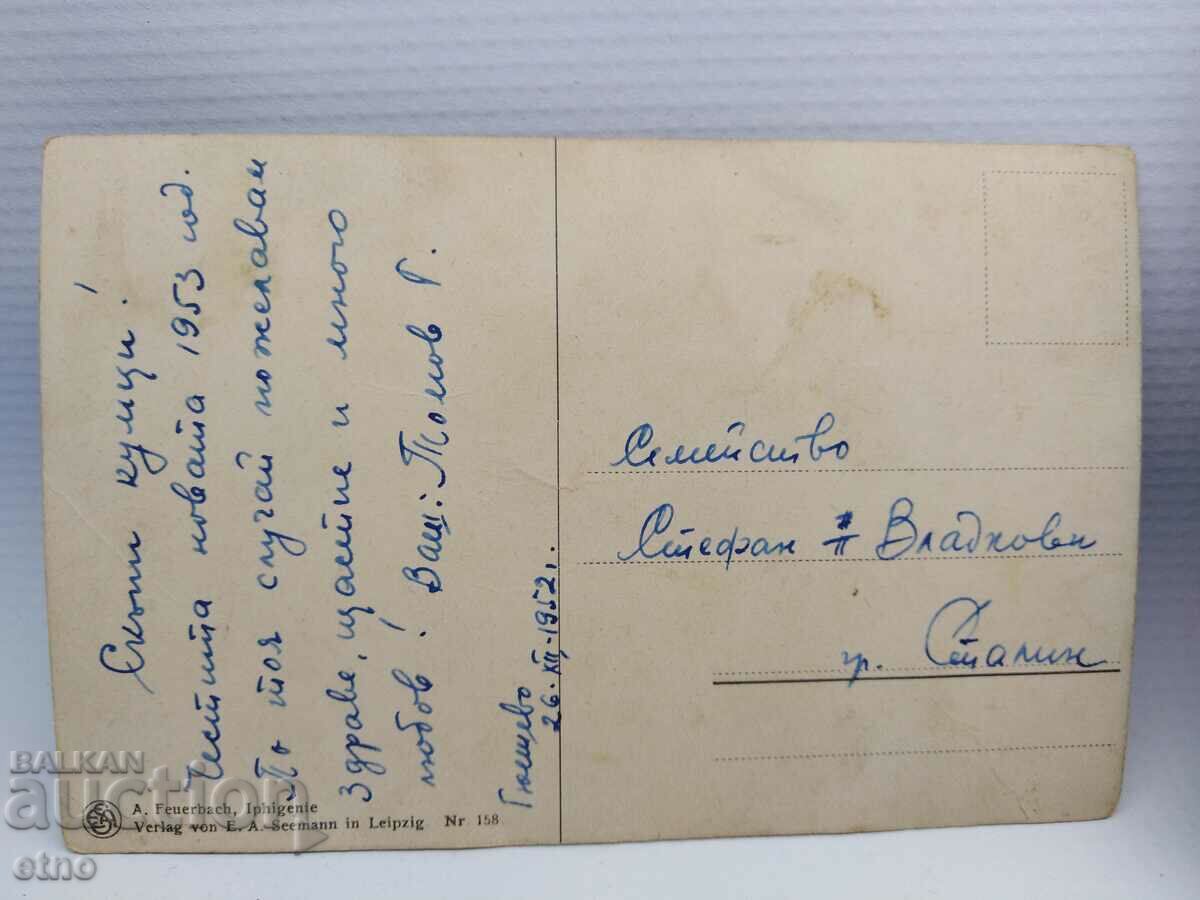 Скъпи кумци!
Честита новата 1953 год.
По тоя случай пожелавам
здраве, щастие и много
любов! Ваш: Томов Г.
Гюешево
26.XII.1952.
Семейство
Стефан П Владкови
гр. Сталин
A. Feuerbach, Iphigenie
Verlag von E. A. Seemann in Leipzig Nr 158
BALKAN
auction
etno